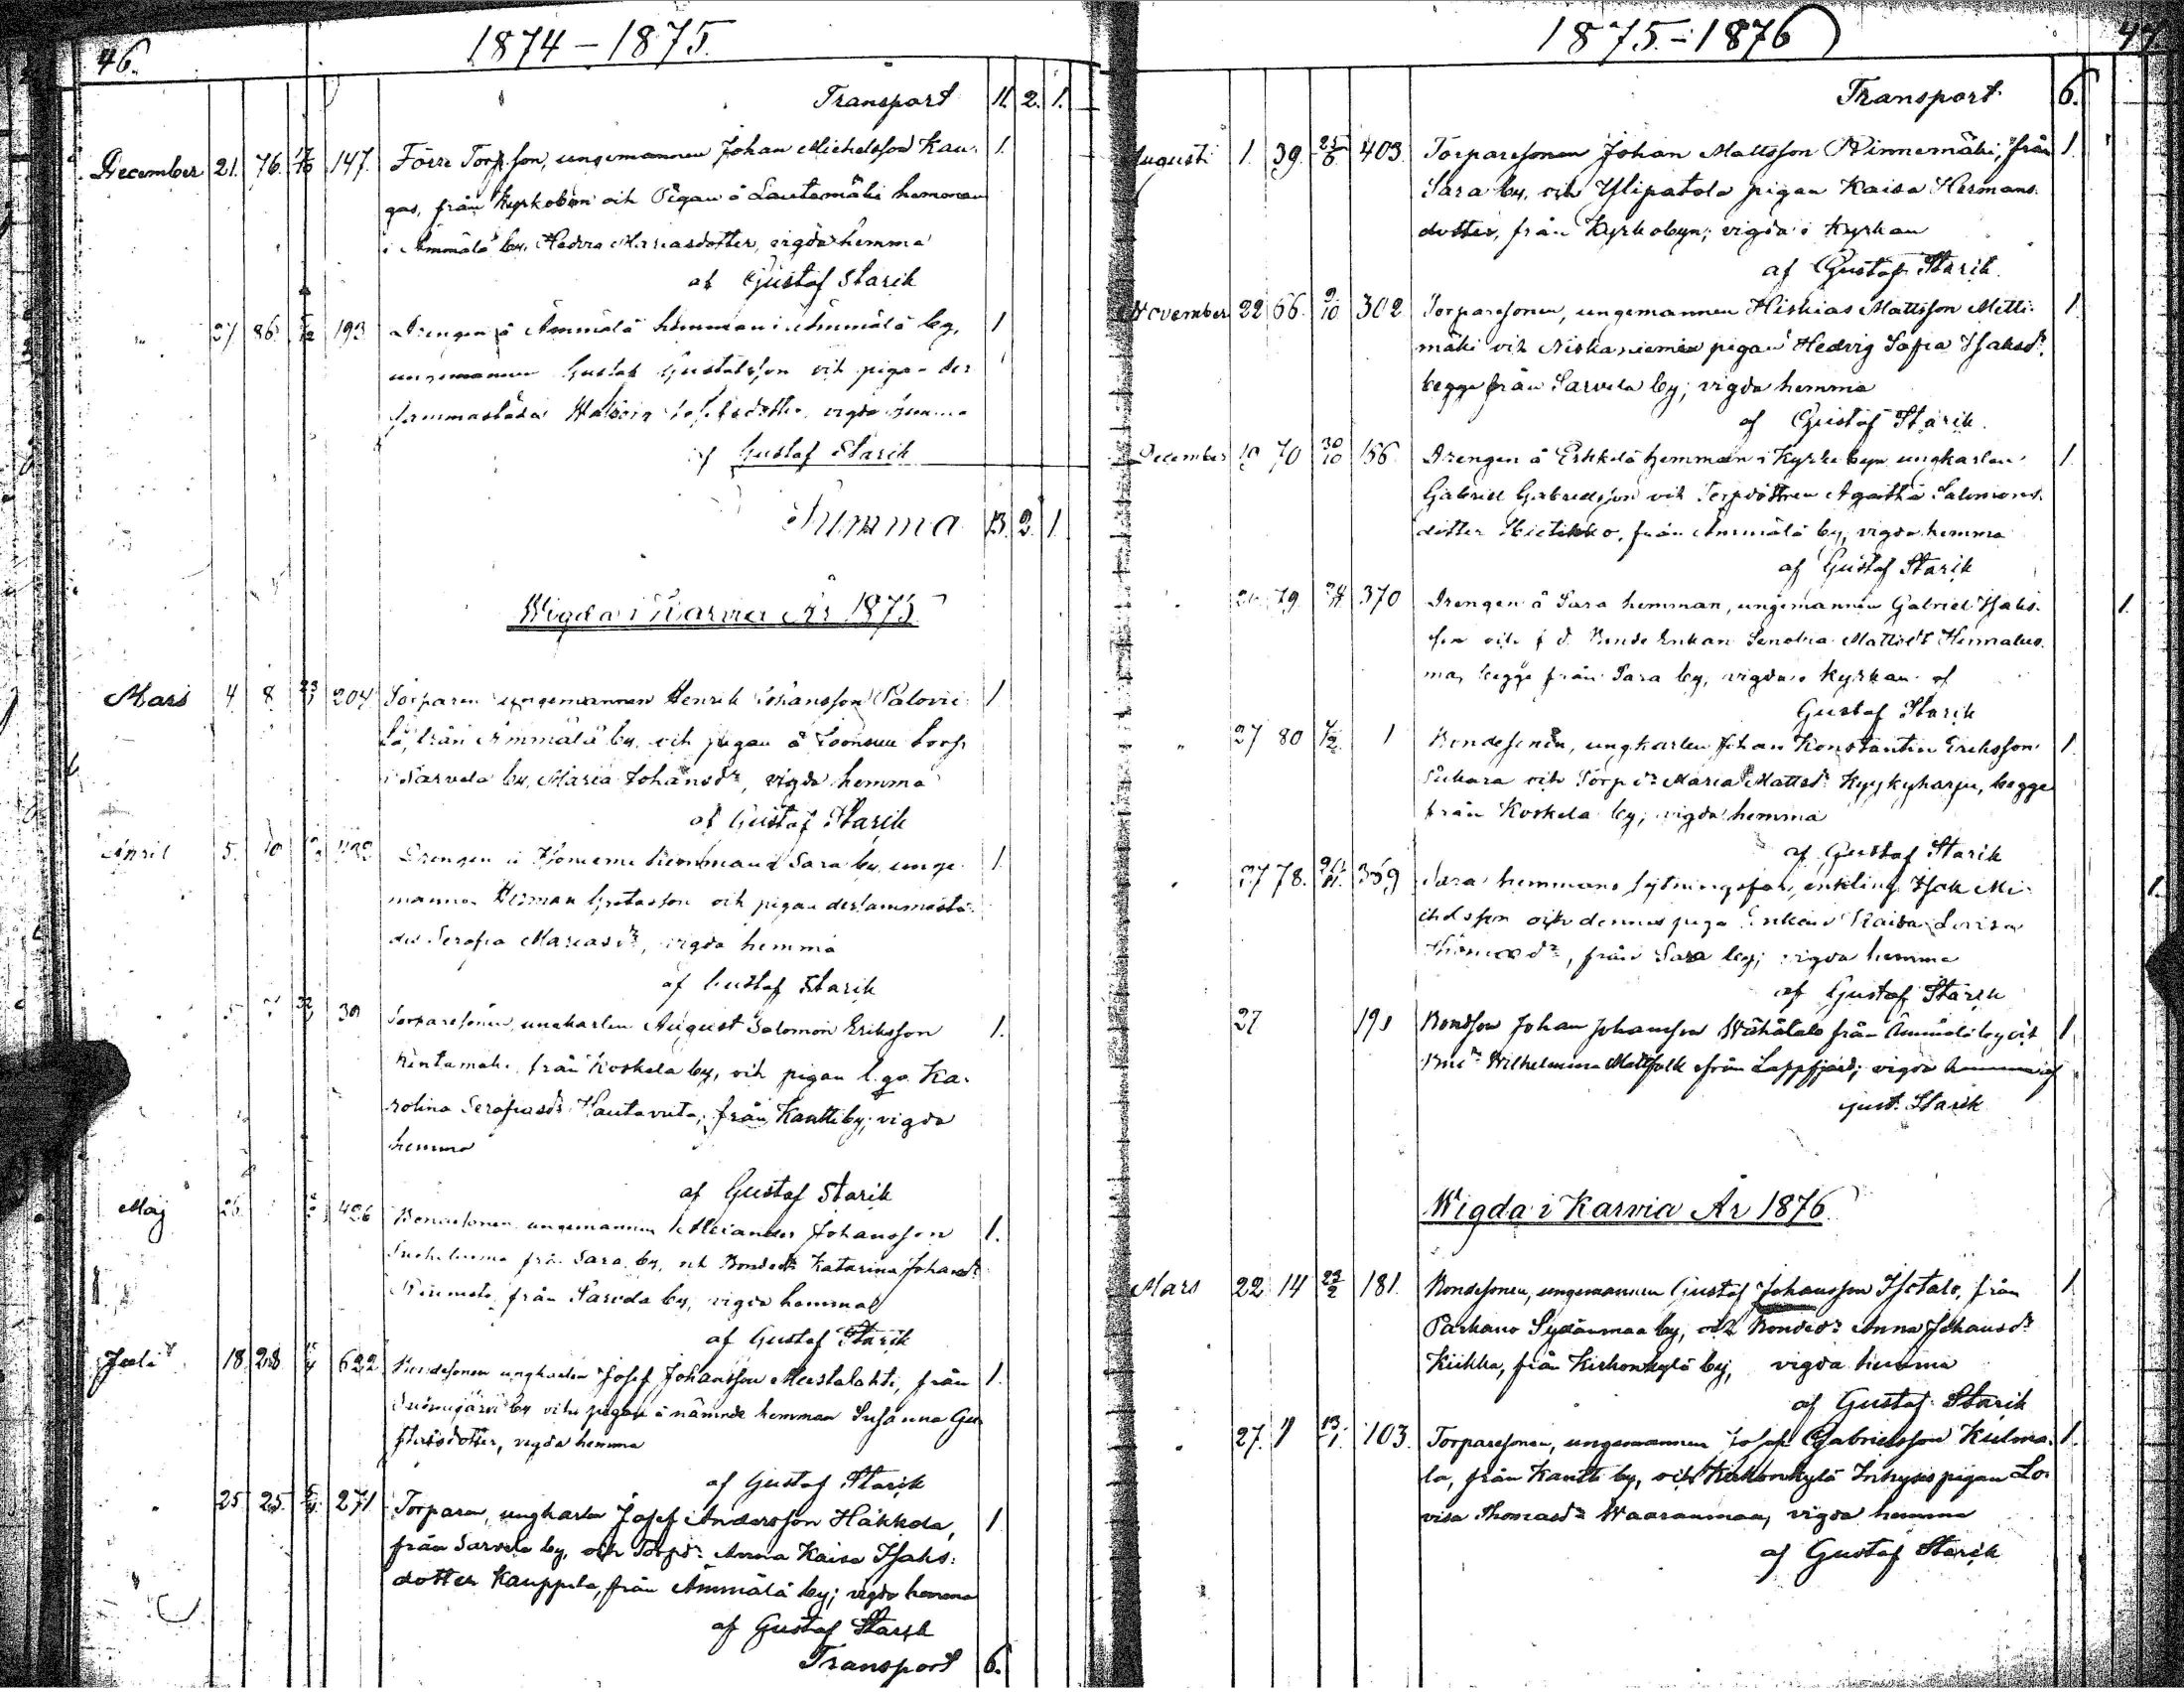 46.
1874 – 1875.
Transport 11. 2. 1.
December 21. 76. 147. Förre Torp.son, ungemannen Johan Michelsson Kau- 1.
gas, från Kyrkobyn och Pigan å Lautamäki hemman
i Ämmälä by, Hedvig Mariasdotter, vigda hemma
af Gustaf Starik
" 27 86 193 Drengen å Ämmälä hemman i Ämmälä by, 1
ungemannen Gustaf Gustafsson och pigan der
sammastädes vigda hemma
af Gustaf Starik
Summa 13. 2. 1.
Wigda i Karvia År 1875
Mars 4 8 204 Torparen ungemannen Henrik Johansson Palovii- 1
lä, från Ämmälä by, och pigan å torp
i Sarvela by, Maria Johansdr, vigda hemma
af Gustaf Starik
April 5. 10 Drengen å hemman i Sara by, unge- 1.
mannen Herman och pigan dersammastä-
des Serafia Mariasdr, vigda hemma
af Gustaf Starik
5 30 Torparesonen, ungkarlen August Salomon Eriksson 1.
från Koskela by, och pigan Ka-
rolina Serafiasdr Hautaviita, från Kantti by; vigda
hemma
af Gustaf Starik
Maj 26 426 Bondesonen ungemannen Alexander Johansson 1.
från Sara by, och Bondedr Katarina Johansdr
från Sarvela by, vigda hemma
af Gustaf Starik
Juli 18. 28 622 Bondesonen ungkarlen Josef Johansson Mustalahti, från 1.
Suomijärvi by och pigan å nämnde hemman Susanna Gu-
stafsdotter, vigda hemma
af Gustaf Starik
" 25. 25. 271 Torparen, ungkarlen Josef Andersson Häkkola, 1
från Sarvela by, och Torpdr Anna Kaisa Isaks-
dotter Kauppila, från Ämmälä by; vigda hemma
af Gustaf Starik
Transport 6.
47
1875. – 1876
Transport 6.
Augusti 1. 39. 403 Torparesonen Johan Mattsson Rinnemäki, från 1.
Sara by, och Ylipatola pigan Kaisa Hermans-
dotter, från Kyrkobyn; vigda i Kyrkan
af Gustaf Starik.
November 22 66. 9/10 302 Torparesonen, ungemannen Hiskias Mattsson Metti- 1.
mäki och Niskaniemen pigan Hedvig Sofia Isaksdr,
begge från Sarvela by; vigda hemma
af Gustaf Starik.
December 19 70 30/10 156 Drengen å Eskkelä hemman i Kyrkobyn ungkarlen 1.
Gabriel Gabrielsson och Torpdottren Agatha Salomons-
dotter Hietikko, från Ämmälä by, vigda hemma
af Gustaf Starik
" 26 79 370 Drengen å Sara hemman, ungemannen Gabriel Isaks- 1.
son och f. d. Bonde Enkan Senobia Mattsdr
begge från Sara by, vigda i Kyrkan af
Gustaf Starik
" 27 80 1 Bondesonen, ungkarlen Johan Konstantin Eriksson 1.
och Torpdr Maria Mattsdr Kyykyharju, begge
från Koskela by; vigda hemma
af Gustaf Starik
" 27 78. 359 Sara hemmans sytningsfar, enkling Isak Mi- 1.
chelsson och dennes piga Enkan Kaisa Lovisa
Thomasdr, från Sara by; vigda hemma
af Gustaf Starik
27 191 Bondson Johan Johansson Wähätalo från Ämmälä by och 1
Wilhelmina från Lappfjärd; vigda hemma af
Gust. Starik
Wigda i Karvia År 1876.
Mars 22 14 22/2 181. Bondesonen, ungemannen Gustaf Johansson Isotalo, från 1
Parkano Sydänmaa by, och Bondedr Anna Johansdr
Kiikka, från Kirkonkylä by, vigda hemma
af Gustaf Starik
" 27. 1 13/1 103. Torparesonen, ungemannen Josef Gabrielsson Kulma- 1.
la, från Kantti by, och Kirkonkylä Inhyses pigan Lo-
visa Thomasdr Waaranmaa, vigda hemma
af Gustaf Starik